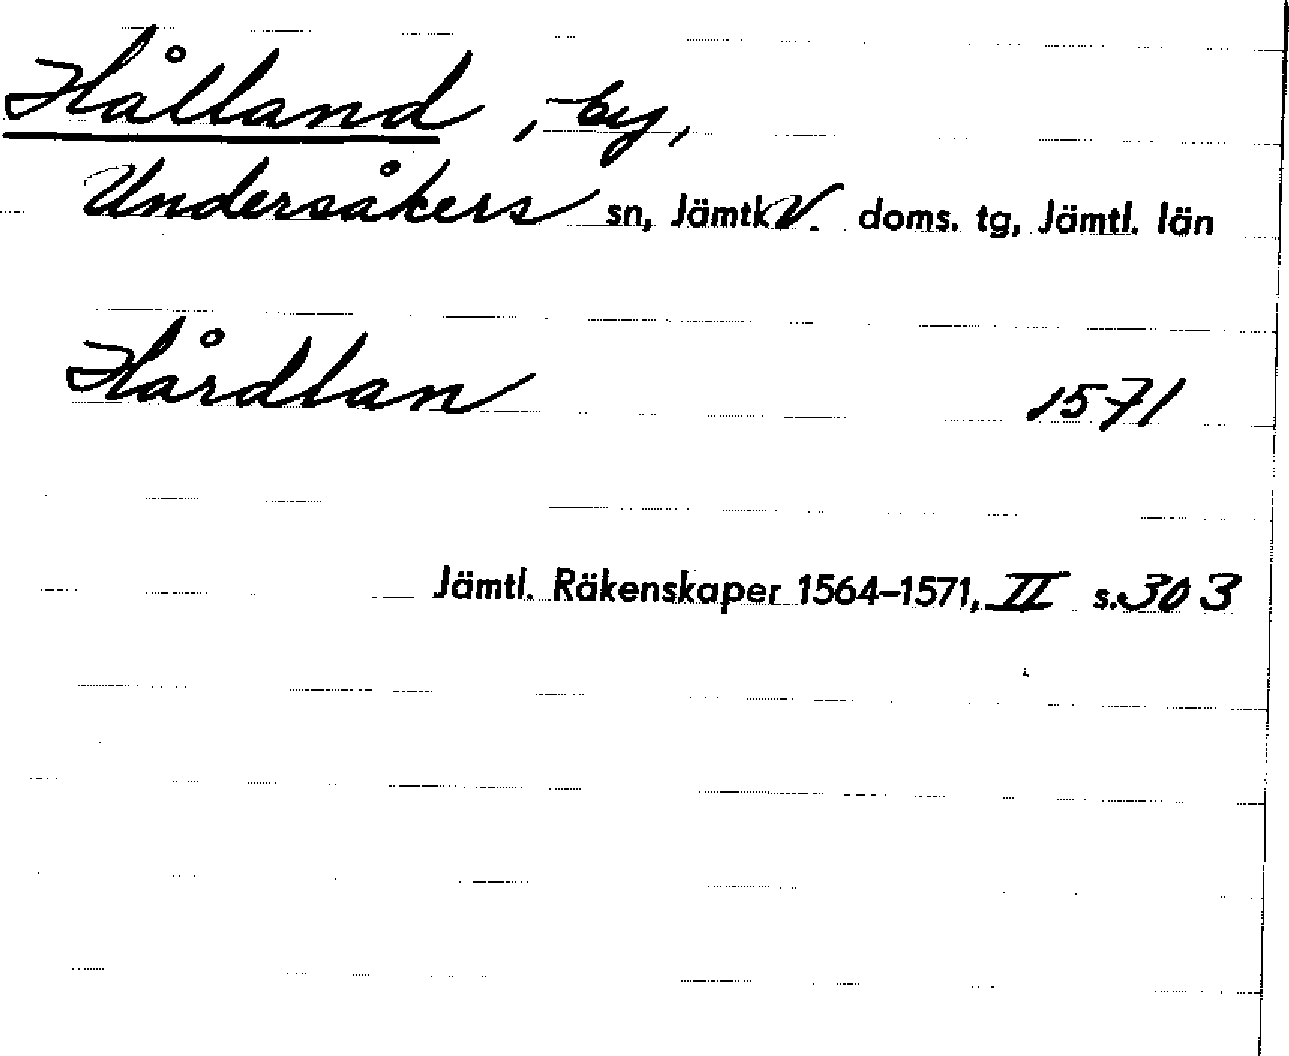 Hålland, by,
Undersåkers sn, Jämtl. V. doms. tg, Jämtl. län
Hårdlan 1571
Jämtl. Räkenskaper 1564–1571, II s. 303